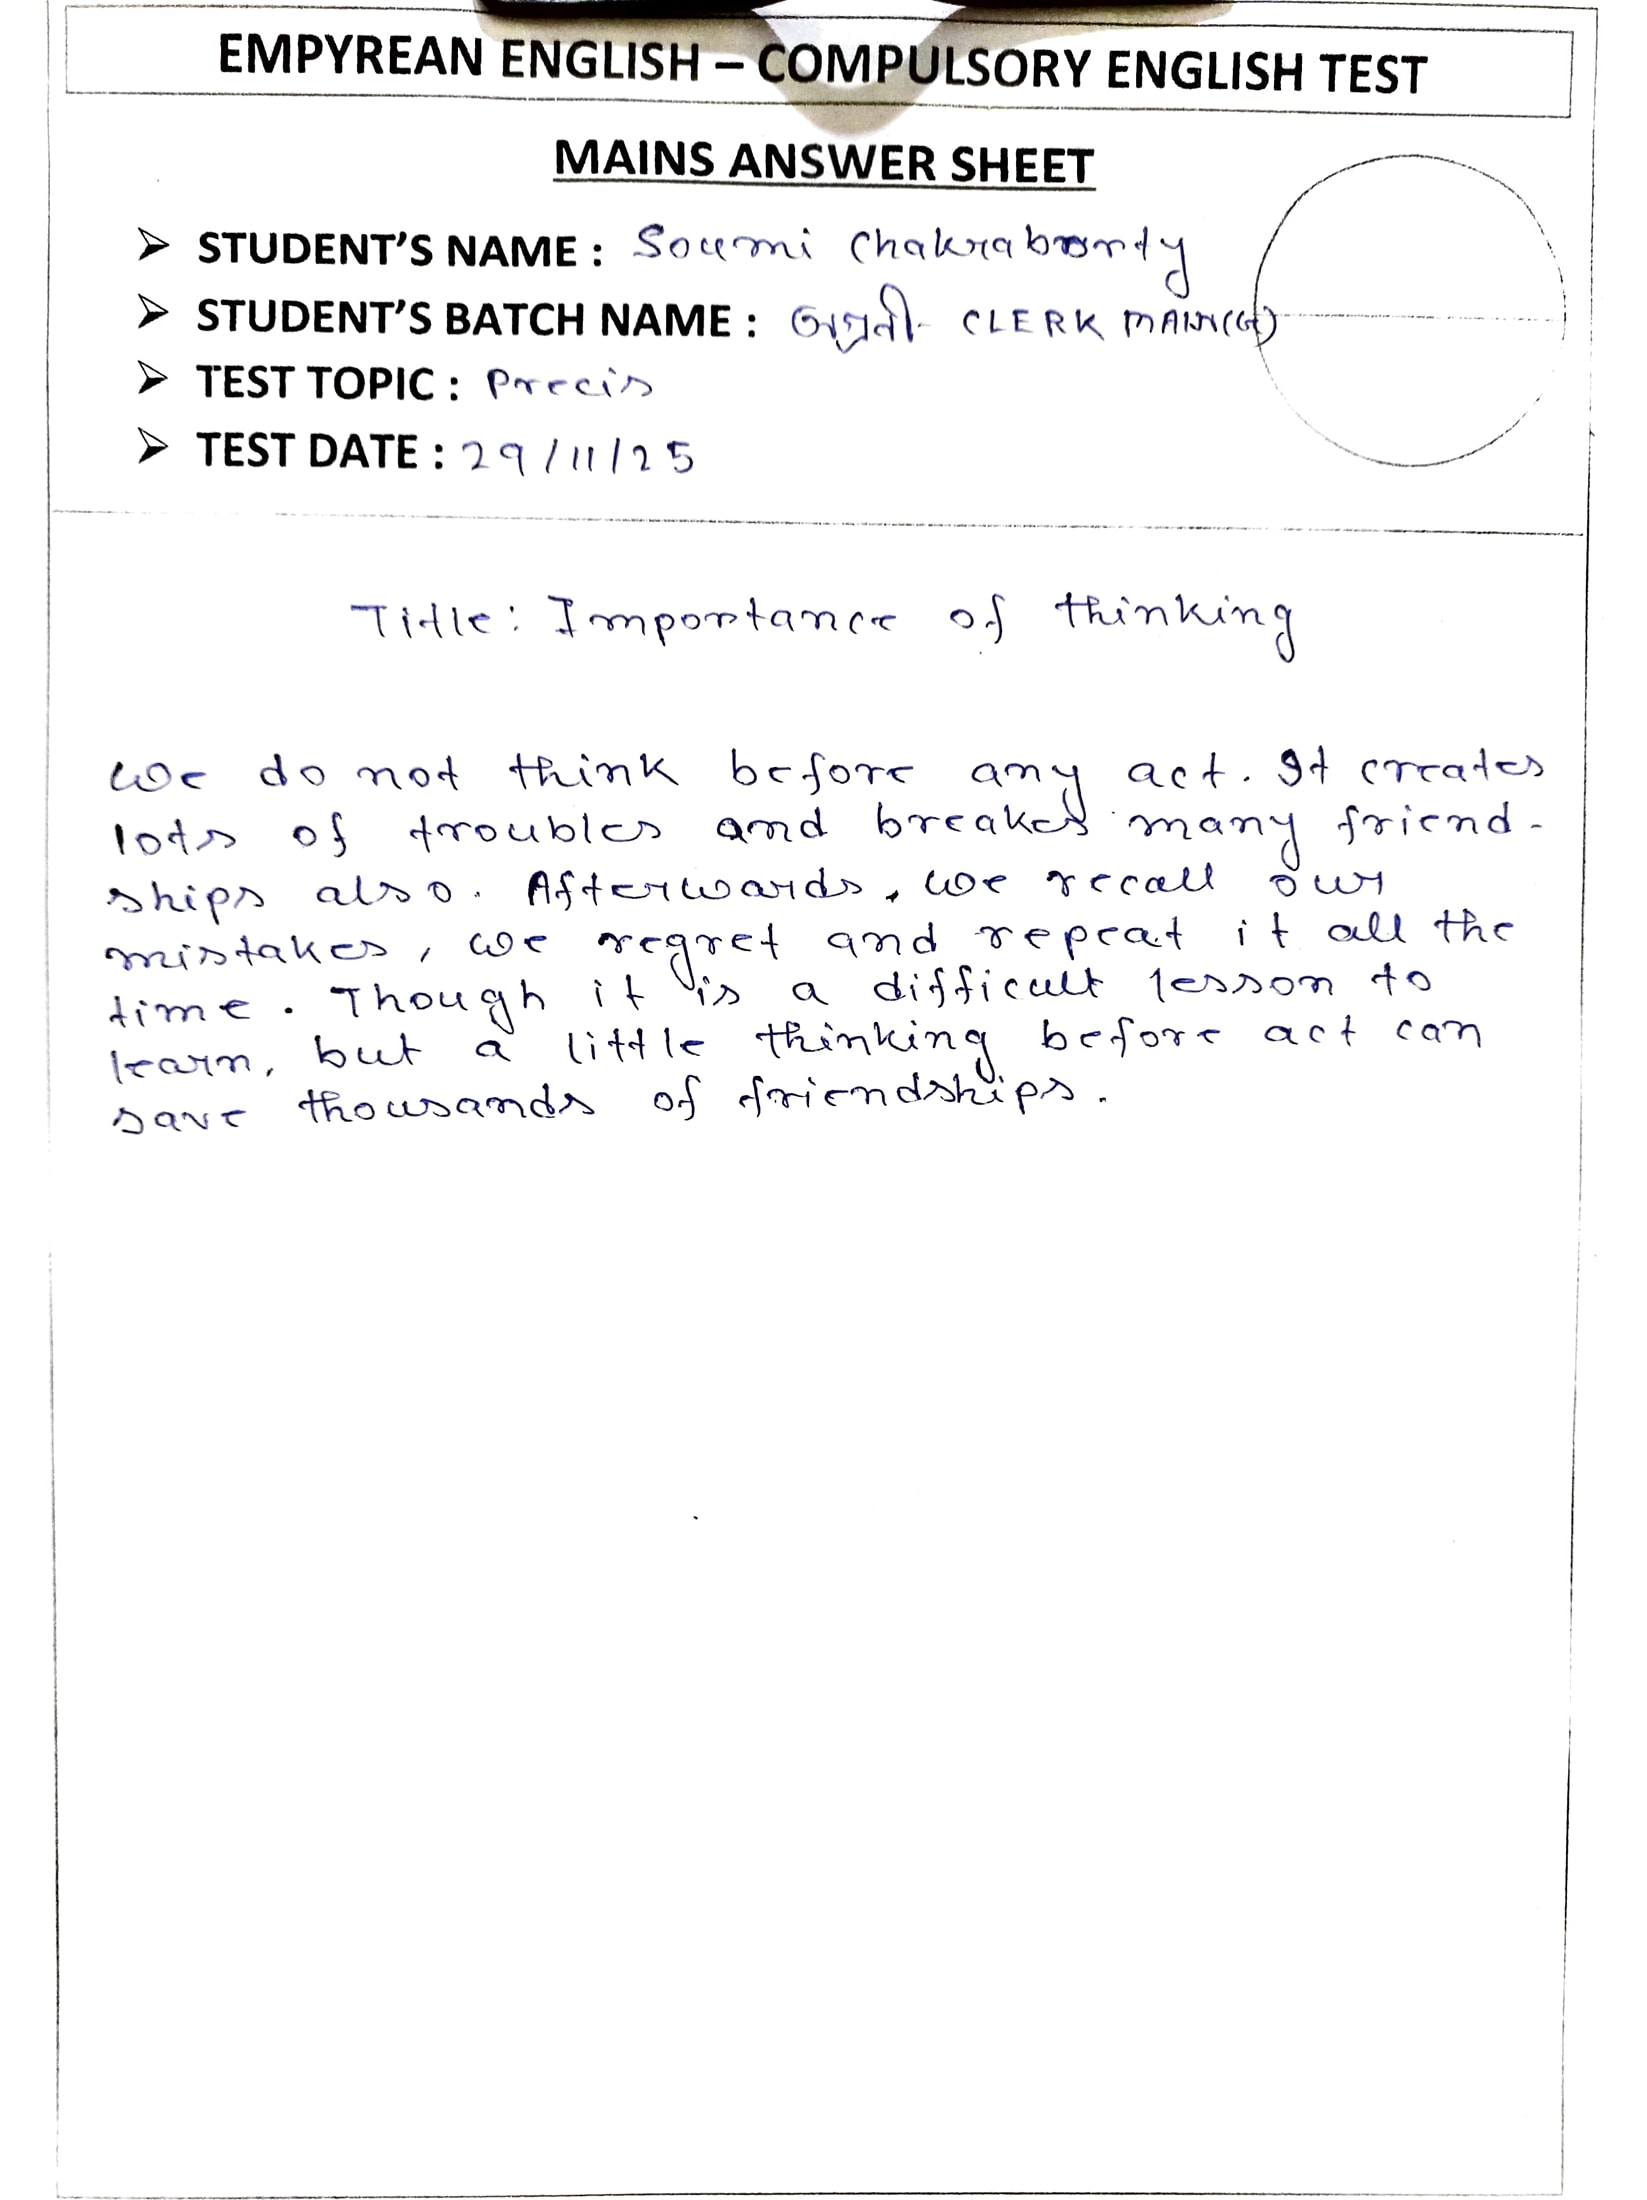 EMPYREAN ENGLISH – COMPULSORY ENGLISH TEST
MAINS ANSWER SHEET
➢ STUDENT'S NAME : Soumi Chakraborty
➢ STUDENT'S BATCH NAME : CLERK MAIN(G)
➢ TEST TOPIC : Precis
➢ TEST DATE : 29/11/25
Title: Importance of thinking
We do not think before any act. It creates
lots of troubles and breakes many friend-
ships also. Afterwards, we recall our
mistakes, we regret and repeat it all the
time. Though it is a difficult lesson to
learn, but a little thinking before act can
save thousands of friendships.